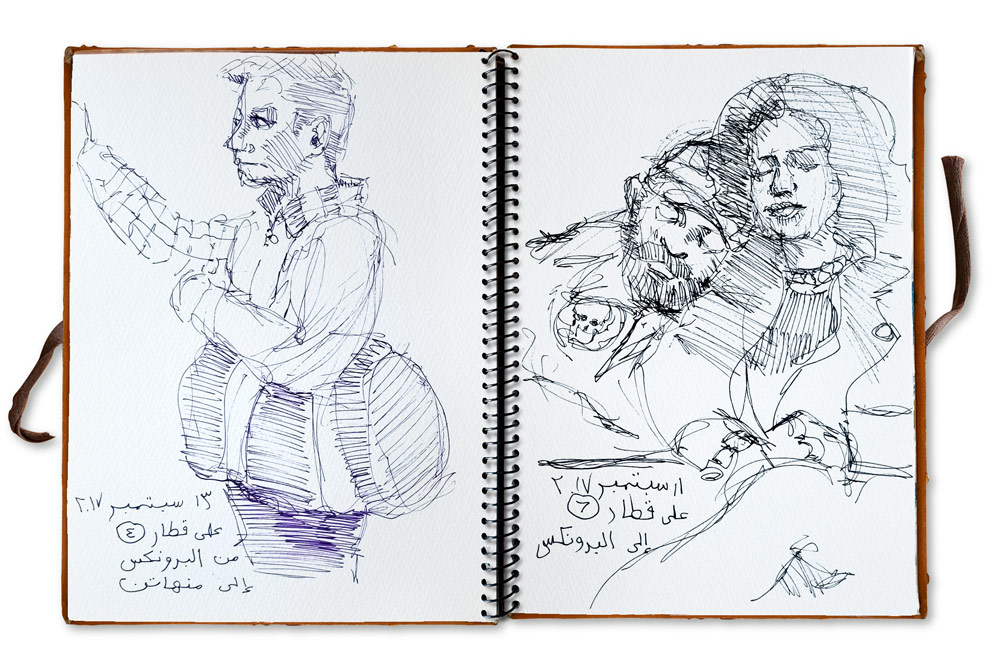 ١٣ سبتمبر ٢٠١٧
على قطار ٤
من البرونكس
إلى منهاتن
١١ سبتمبر ٢٠١٧
على قطار ٦
إلى البرونكس